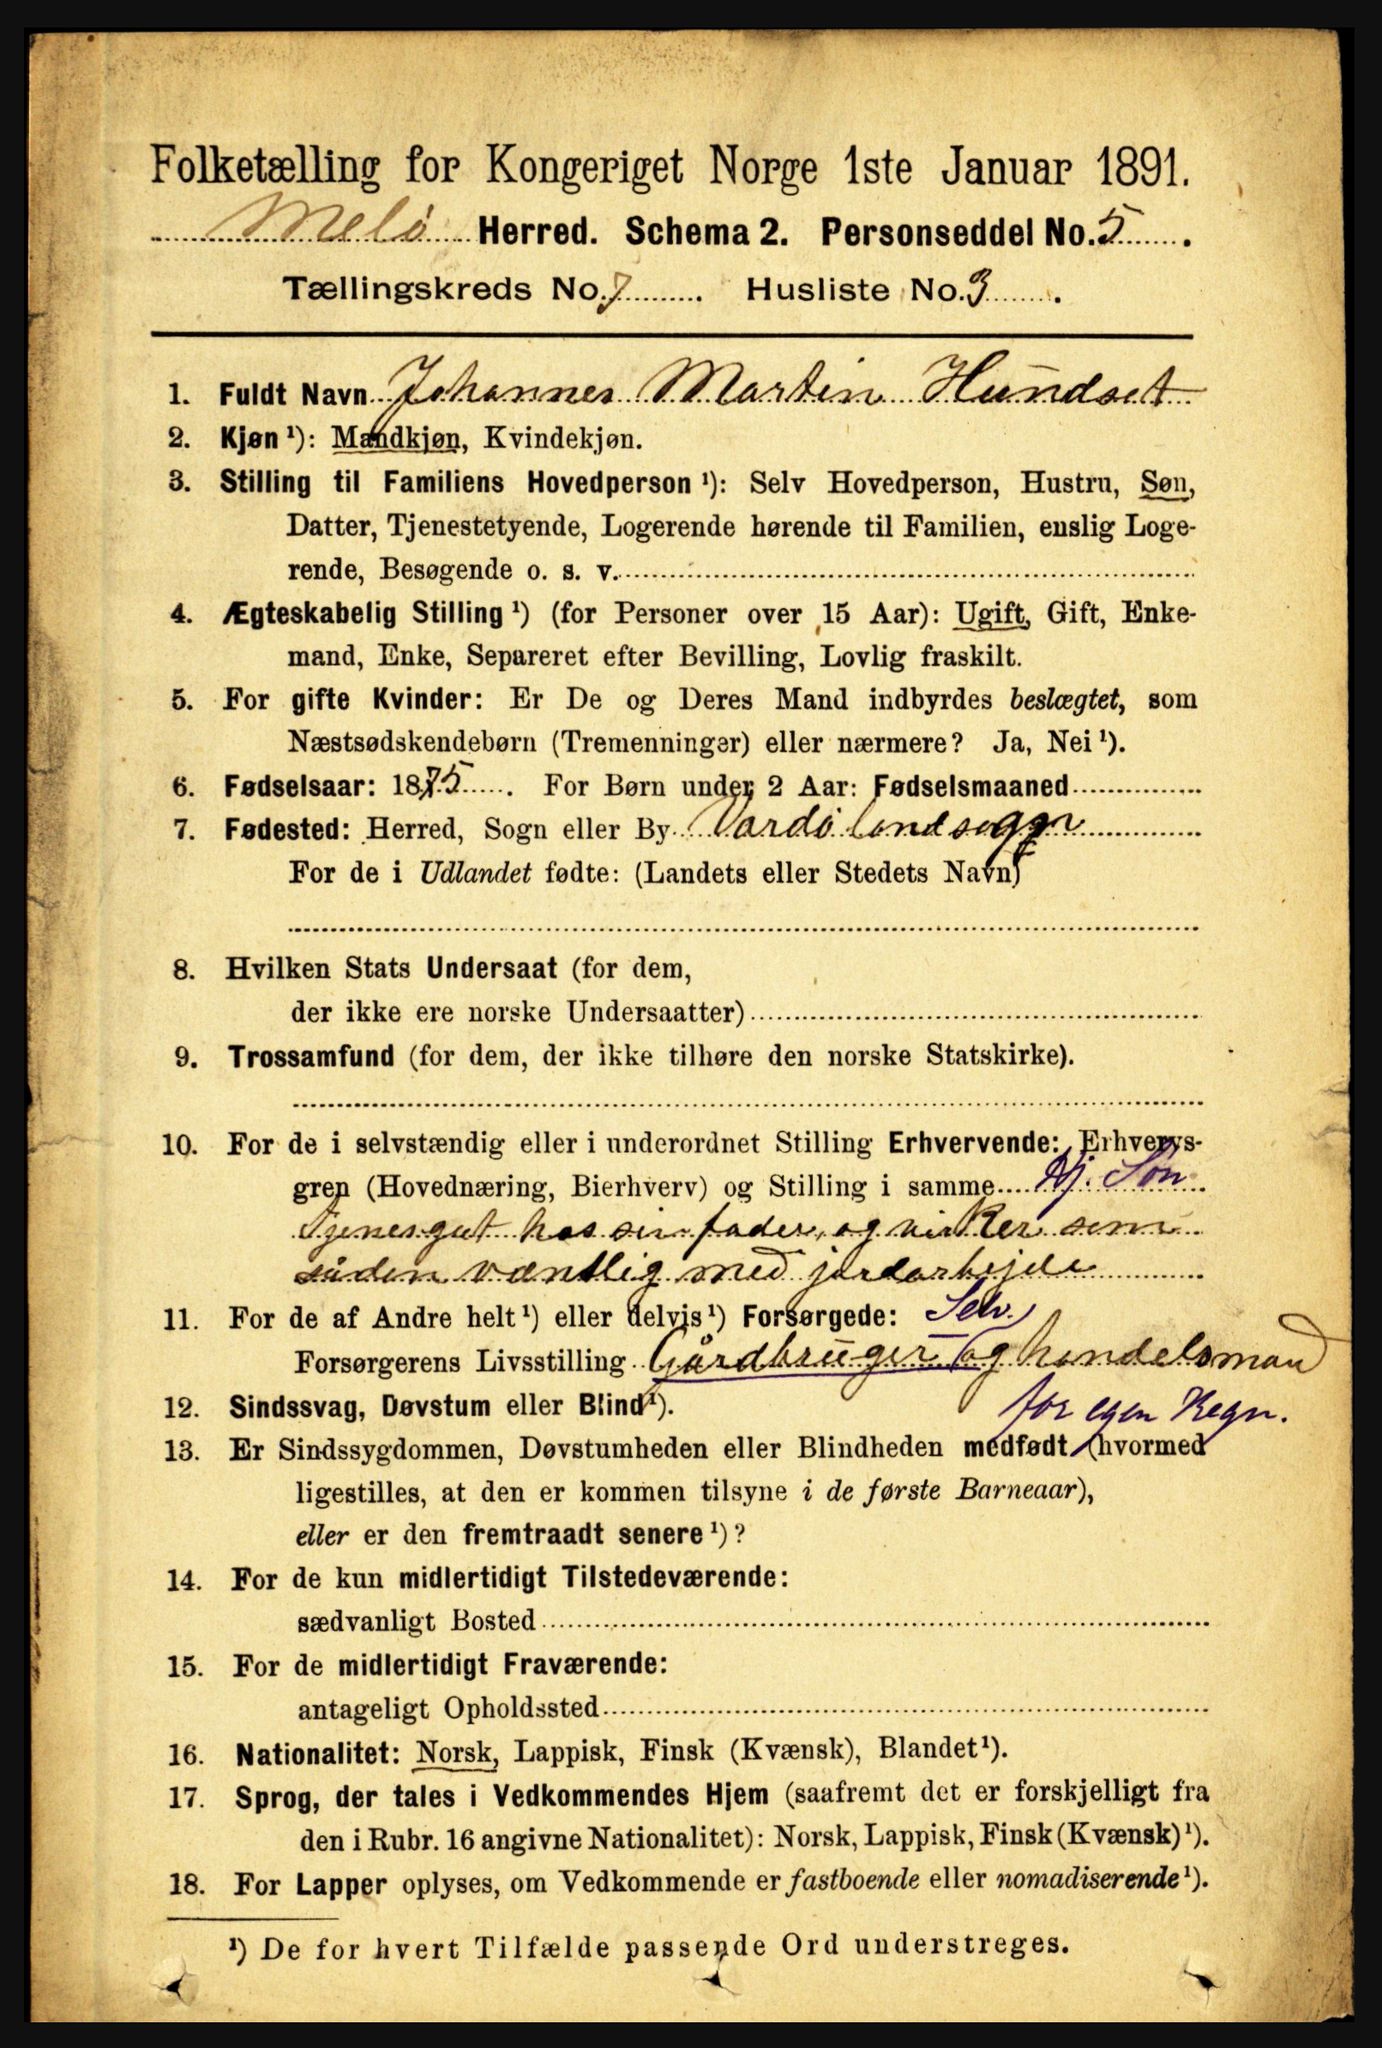 Folketælling for Kongeriget Norge 1ste Januar 1891.
Melö Herred. Schema 2. Personseddel No. 5.
Tællingskreds No. 7. Husliste No. 3.
1. Fuldt Navn Johannes Martin Hundset
2. Kjøn¹): Mandkjøn, Kvindekjøn.
3. Stilling til Familiens Hovedperson¹): Selv Hovedperson, Hustru, Søn,
Datter, Tjenestetyende, Logerende hørende til Familien, enslig Loge-
rende, Besøgende o. s. v.
4. Ægteskabelig Stilling¹) (for Personer over 15 Aar): Ugift, Gift, Enke-
mand, Enke, Separeret efter Bevilling, Lovlig fraskilt.
5. For gifte Kvinder: Er De og Deres Mand indbyrdes beslægtet, som
Næstsødskendebørn (Tremenninger) eller nærmere? Ja, Nei¹).
6. Fødselsaar: 1875. For Børn under 2 Aar: Fødselsmaaned
7. Fødested: Herred, Sogn eller By Vardö landsogn
For de i Udlandet fødte: (Landets eller Stedets Navn)
8. Hvilken Stats Undersaat (for dem,
der ikke ere norske Undersaatter)
9. Trossamfund (for dem, der ikke tilhøre den norske Statskirke).
10. For de i selvstændig eller i underordnet Stilling Erhvervende: Erhvervs-
gren (Hovednæring, Bierhverv) og Stilling i samme Hj. Søn
Tjenesgut hos sin fader, og virker som
såden væntlig med jordarbejde
11. For de af Andre helt¹) eller delvis¹) Forsørgede: Selv.
Forsørgerens Livsstilling Gårdbruger og handelsmand
for egen Regn.
12. Sindssvag, Døvstum eller Blind¹).
13. Er Sindssygdommen, Døvstumheden eller Blindheden medfødt (hvormed
ligestilles, at den er kommen tilsyne i de første Barneaar),
eller er den fremtraadt senere¹)?
14. For de kun midlertidigt Tilstedeværende:
sædvanligt Bosted
15. For de midlertidigt Fraværende:
antageligt Opholdssted
16. Nationalitet: Norsk, Lappisk, Finsk (Kvænsk), Blandet¹).
17. Sprog, der tales i Vedkommendes Hjem (saafremt det er forskjelligt fra
den i Rubr. 16 angivne Nationalitet): Norsk, Lappisk, Finsk (Kvænsk)¹).
18. For Lapper oplyses, om Vedkommende er fastboende eller nomadiserende¹).
¹) De for hvert Tilfælde passende Ord understreges.